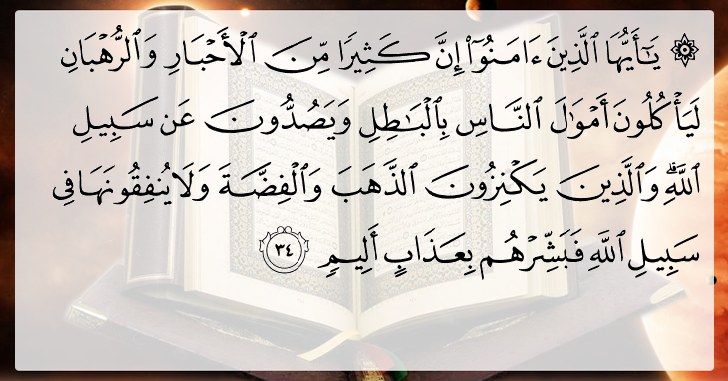 ۞ يَـٰٓأَيُّهَا ٱلَّذِينَ ءَامَنُوٓا۟ إِنَّ كَثِيرًا مِّنَ ٱلْأَحْبَارِ وَٱلرُّهْبَانِ
لَيَأْكُلُونَ أَمْوَٰلَ ٱلنَّاسِ بِٱلْبَـٰطِلِ وَيَصُدُّونَ عَن سَبِيلِ
ٱللَّهِ ۗ وَٱلَّذِينَ يَكْنِزُونَ ٱلذَّهَبَ وَٱلْفِضَّةَ وَلَا يُنفِقُونَهَا فِى
سَبِيلِ ٱللَّهِ فَبَشِّرْهُم بِعَذَابٍ أَلِيمٍ ٣٤